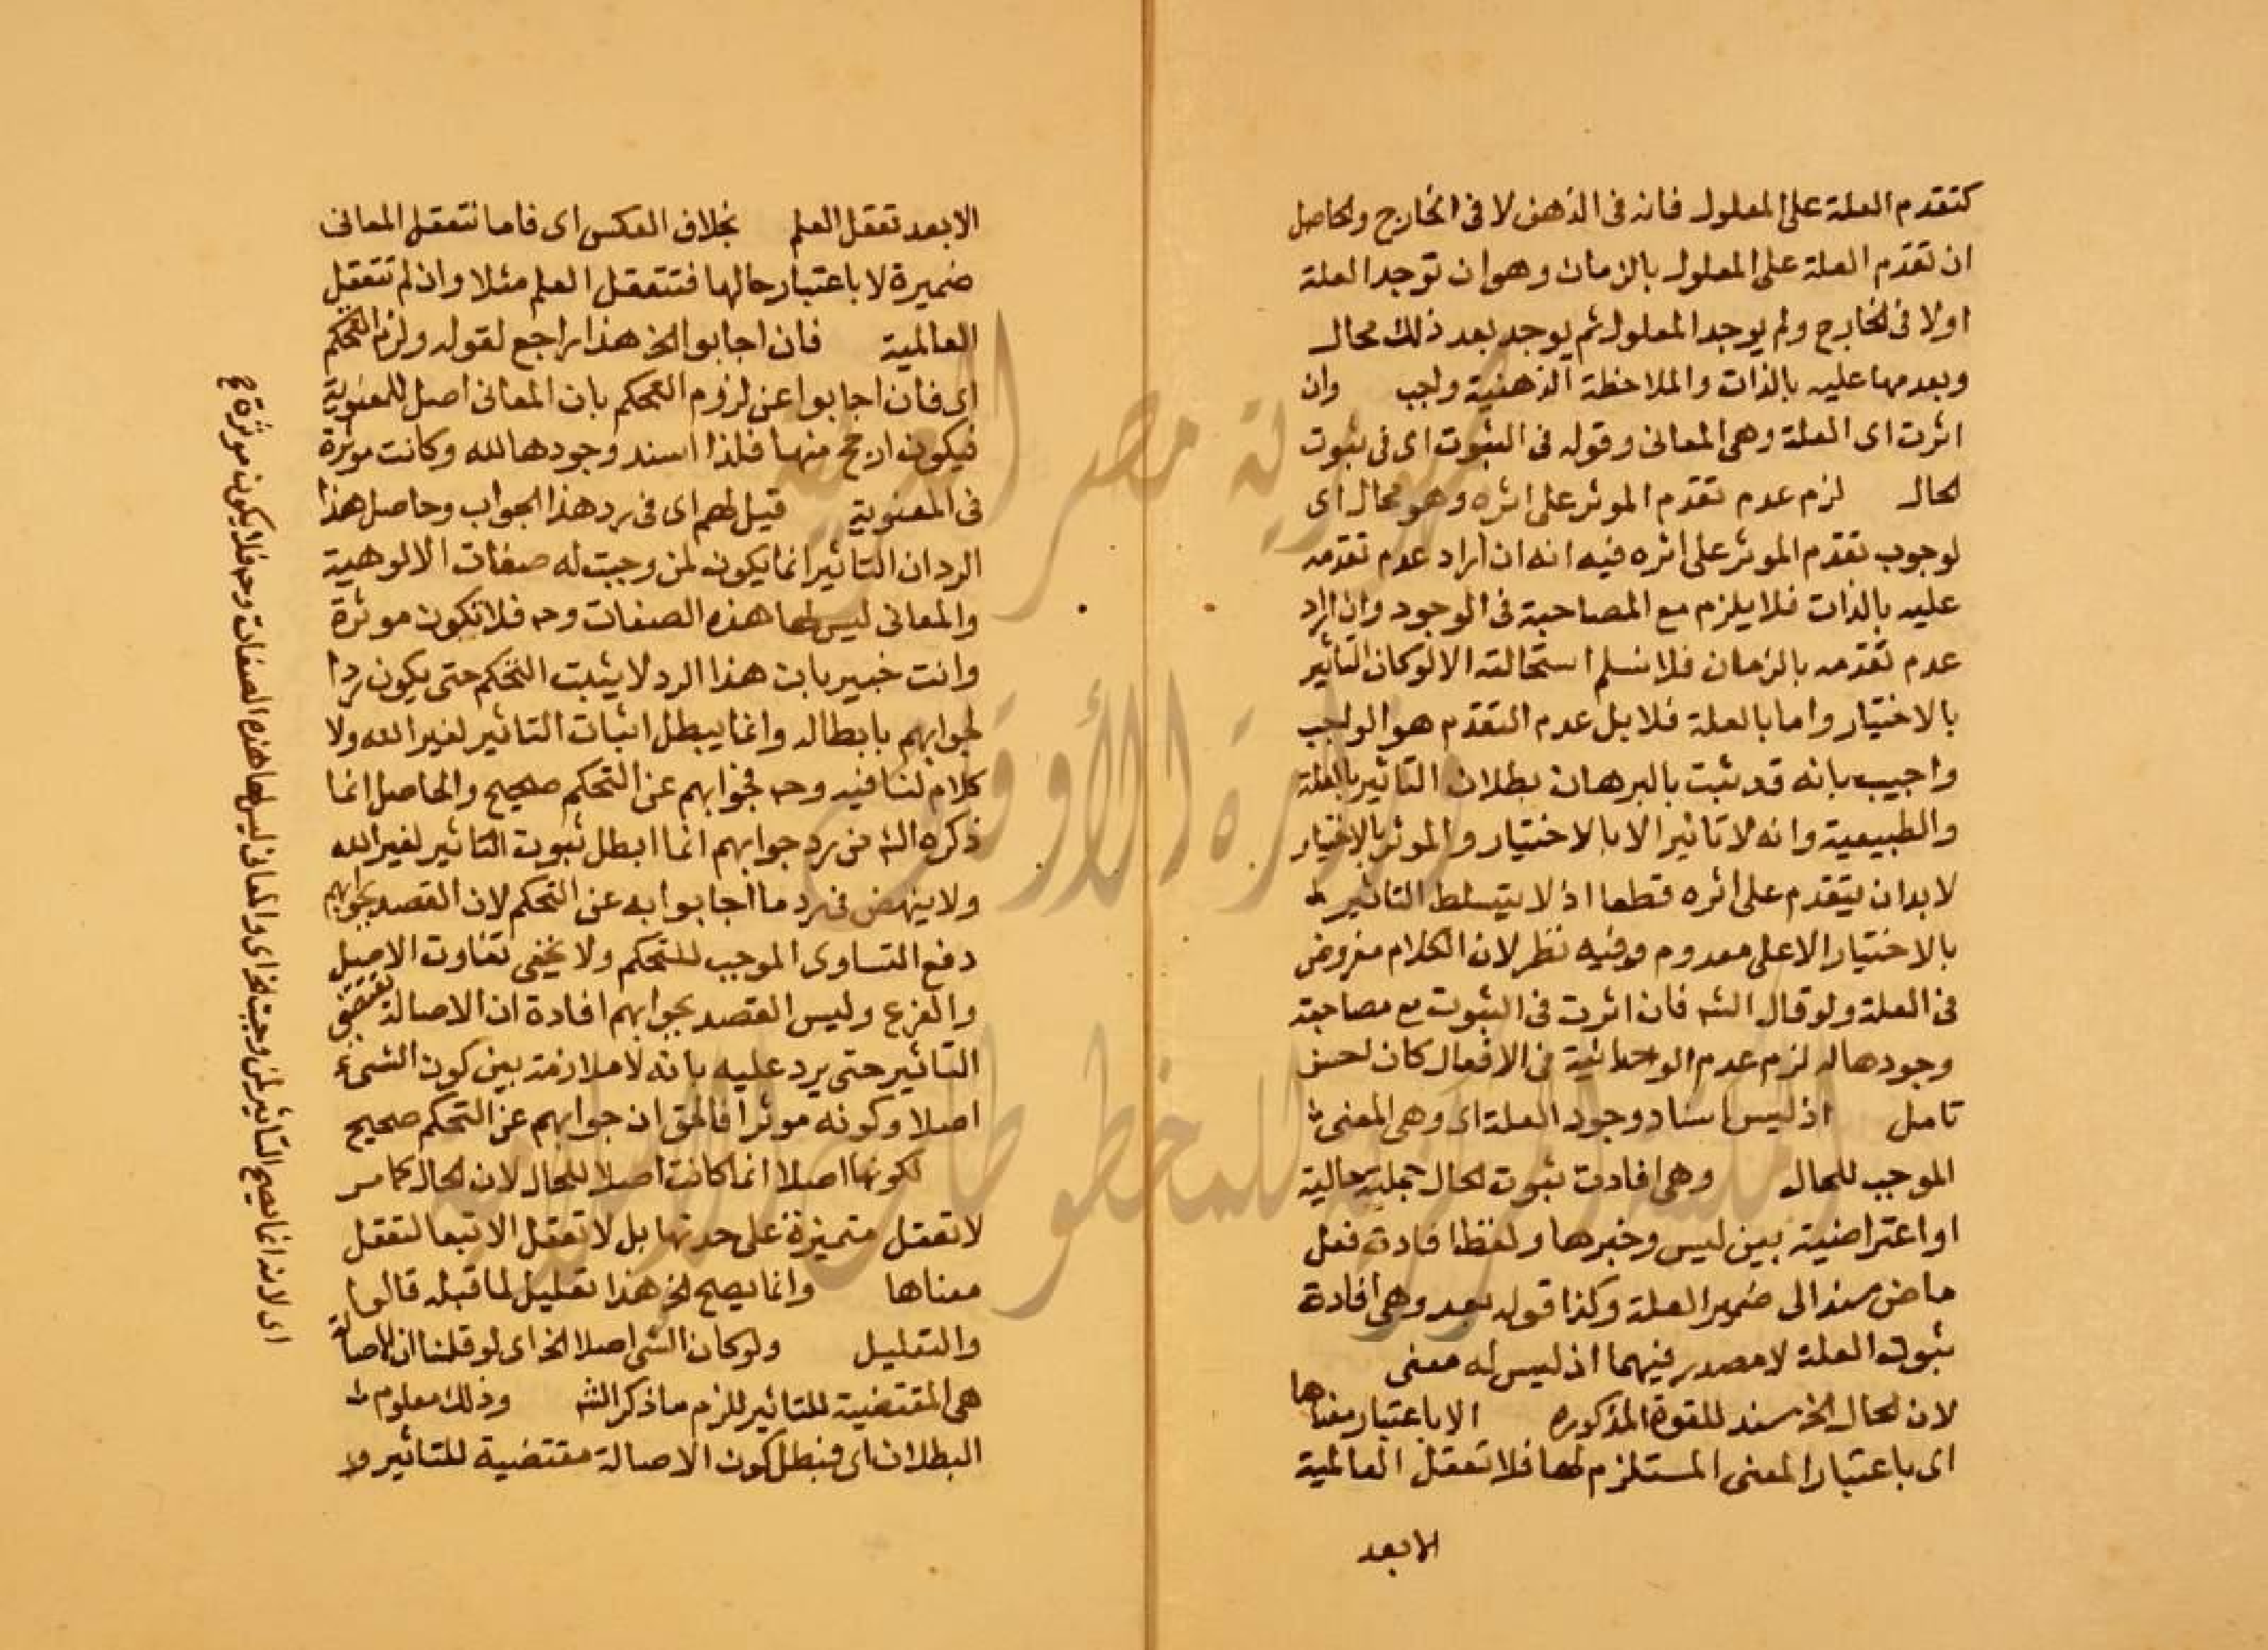 كتقدم العلة على المعلول فانه فى الذهن لا فى الخارج والحاصل
ان تقدم العلة على المعلول بالزمان وهو ان توجد العلة
اولا فى الخارج ولم يوجد المعلول ثم يوجد بعد ذلك محال
وبعدمها عليه بالذات والملاحظة الذهنية واجب وان
اثرت اى العلة وهى المعانى وقوله فى الثبوت اى فى ثبوت
الحال لزم عدم تقدم الموثر على اثره وهو محال اى
لوجوب تقدم الموثر على اثره فيه انه ان اراد عدم تقدمه
عليه بالذات فلا يلزم مع المصاحبة فى الوجود وان اراد
عدم تقدمه بالزمان فلا نسلم استحالته الا لو كان التأثير
بالاختيار واما بالعلة فلا بل عدم التقدم هو الواجب
واجيب بانه قد ثبت بالبرهان بطلان التاثير بالعلة
والطبيعية وانه لا تاثير الا بالاختيار والموثر بالاختيار
لا بد ان يتقدم على اثره قطعا اذ لا يتسلط التاثير
بالاختيار الا على معدوم وفيه نظر لان الكلام مفروض
فى العلة ولو قال الشه فان اثرت فى الثبوت مع مصاحبة
وجودها له لزم عدم الوحدانية فى الافعال كان احسن
تامل اذ ليس اسناد وجود العلة اى وهى المعنى
الموجب للحال وهى افادت ثبوت الحال جملة حالية
او اعتراضية بين ليس وخبرها ولفظ افادت فعل
ماض مسند الى ضمير العلة وكذا قوله بعد وهى افادة
ثبوت العلة لا مصدر فيهما اذ ليس له معنى
لان الحال الخ سند للقوة المذكوره الا باعتبار معناها
اى باعتبار المعنى المستلزم لها فلا تعقل العالمية
الا بعد
الا بعد تعقل العلم بخلاف العكس اى فاما نتعقل المعانى
ضميرة لا باعتبار حالها فتتعقل العلم مثلا وان لم تتعقل
العالمية فان اجابوا الخ هذا راجع لقوله ولزم التحكم
اى فان اجابوا عن لزوم التحكم بان المعانى اصل للمعنوية
فيكون ارجح منها فلذا اسند وجودها لله وكانت موثرة
فى المعنوية قيل لهم اى فى رد هذا الجواب وحاصل هذا
الرد ان التاثير انما يكون لمن وجبت له صفات الالوهية
والمعانى ليس لها هذه الصفات وح فلا تكون موثرة
وانت خبير بان هذا الرد لا يثبت التحكم حتى يكون ردا
لجوابهم بابطاله وانما يبطل اثبات التاثير لغير الله ولا
كلام لنا فيه وح فجوابهم عن التحكم صحيح والحاصل انما
ذكره الشه من رد جوابهم انما ابطل ثبوت التاثير لغير الله
ولا ينهض فى رد ما اجابوا به عن التحكم لان القصد بجوابهم
دفع التساوى الموجب للتحكم ولا يخفى تفاوت الاصل
والفرع وليس القصد بجوابهم افادة ان الاصالة تقتضى
التاثير حتى يرد عليه بانه لا ملازمة بين كون الشىء
اصلا وكونه موثرا فالحق ان جوابهم عن التحكم صحيح
لكونها اصلا انما كانت اصلا للحال لان الحال كما مر
لا تعقل متميزة على حدتها بل لا تعقل الا تبعا لتعقل
معناها وانما يصح الخ هذا تعليل لما قبله
والتعليل ولو كان الشى اصلا الخ اى لو قلنا ان الاصالة
هى المقتضية للتاثير للزم ما ذكر الشه وذلك معلوم
البطلان اى فبطل كون الاصالة مقتضية للتاثير ولا
اى لانه انما يصح التأثير لمن وجبت الخ اى والمعانى ليس لها هذه الصفات وح فلا يكون موثرة